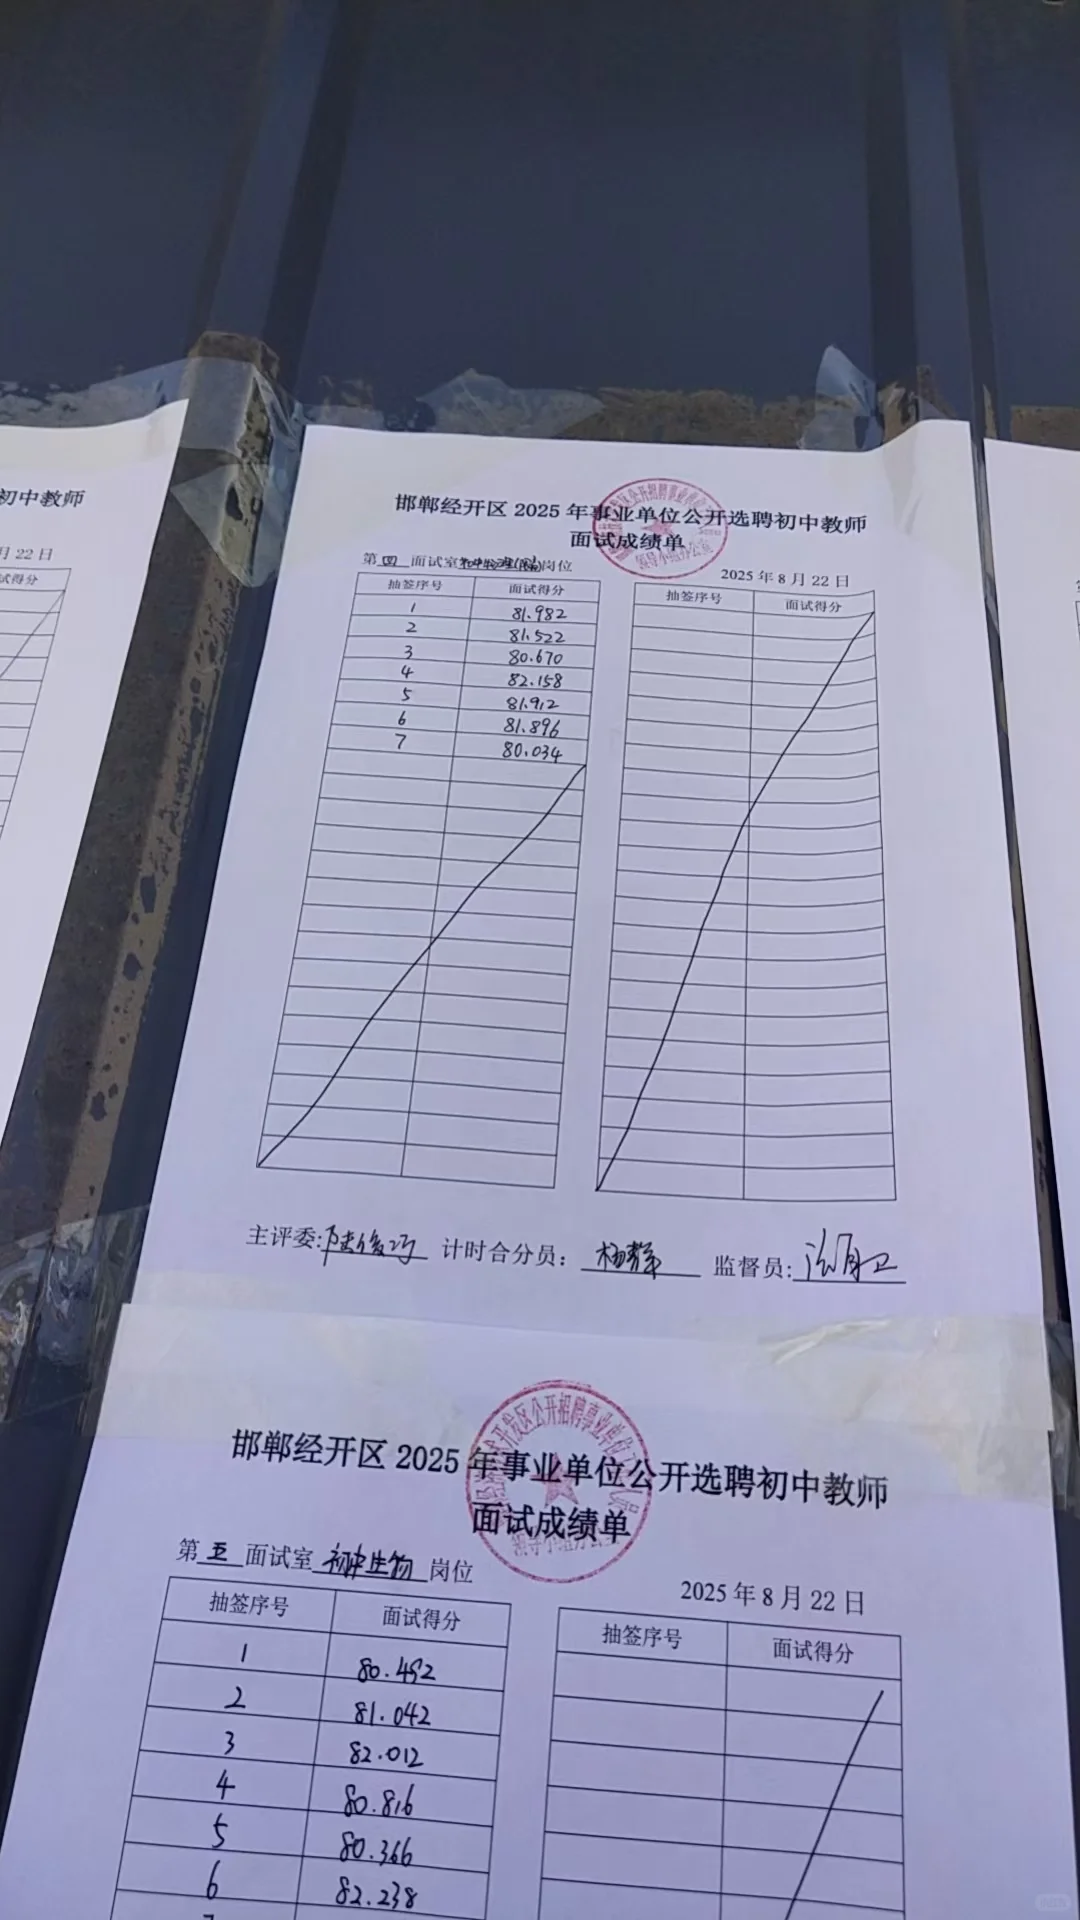 初中教师
月 22 日
试得分
邯郸经开区 2025 年事业单位公开选聘初中教师
面试成绩单
第 四 面试室 初中物理 岗位
2025 年 8 月 22 日
抽签序号 面试得分 抽签序号 面试得分
1 81.982
2 81.522
3 80.670
4 82.158
5 81.912
6 81.896
7 80.034
主评委: 计时合分员: 杨静 监督员:
邯郸经开区 2025 年事业单位公开选聘初中教师
面试成绩单
第 五 面试室 初中生物 岗位
2025 年 8 月 22 日
抽签序号 面试得分 抽签序号 面试得分
1 80.452
2 81.042
3 82.012
4 80.816
5 80.366
6 82.238